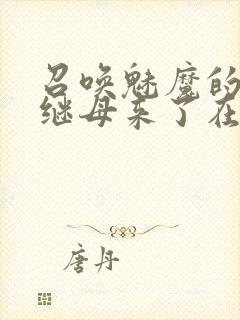 召唤魅魔的
继母来了在
唐丹